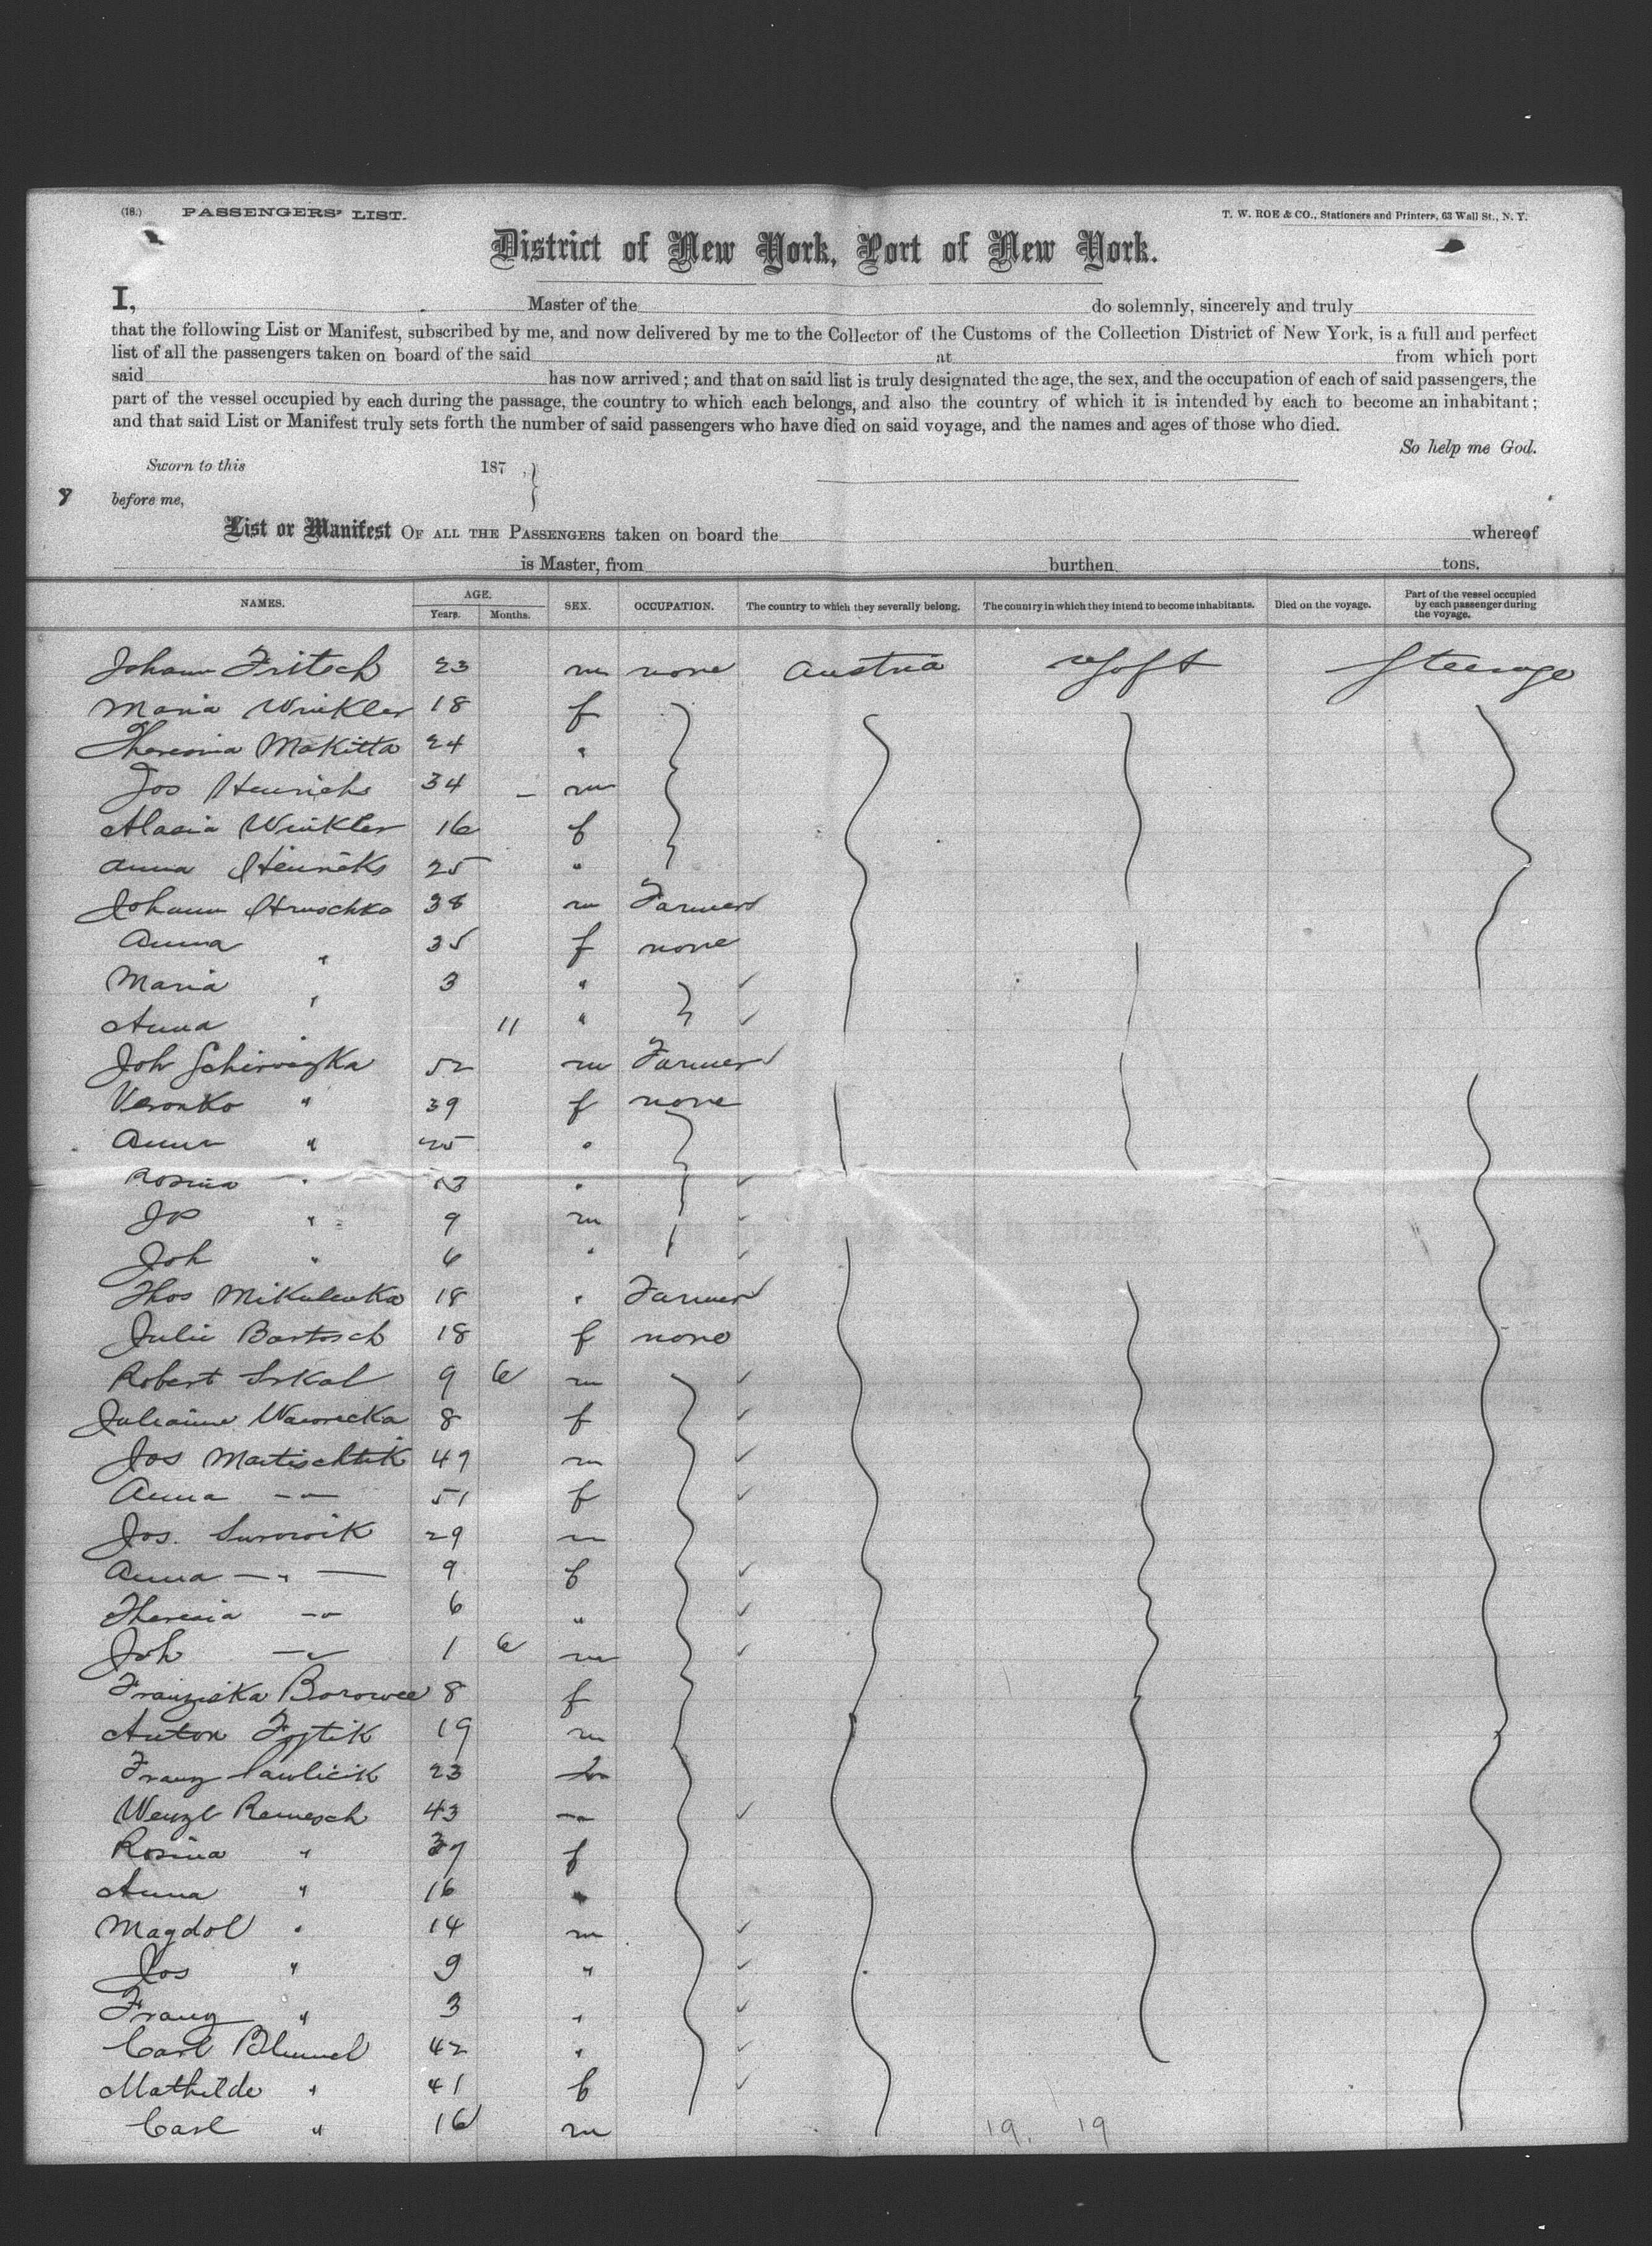 (18.) PASSENGERS' LIST. T. W. ROE & CO., Stationers and Printers, 63 Wall St., N. Y.
District of New York, Port of New York.
I, Master of the do solemnly, sincerely and truly
that the following List or Manifest, subscribed by me, and now delivered by me to the Collector of the Customs of the Collection District of New York, is a full and perfect
list of all the passengers taken on board of the said at from which port
said has now arrived; and that on said list is truly designated the age, the sex, and the occupation of each of said passengers, the
part of the vessel occupied by each during the passage, the country to which each belongs, and also the country of which it is intended by each to become an inhabitant;
and that said List or Manifest truly sets forth the number of said passengers who have died on said voyage, and the names and ages of those who died.
So help me God.
Sworn to this 187
before me,
List or Manifest OF ALL THE PASSENGERS taken on board the whereof
is Master, from burthen tons.
NAMES. AGE. Years. Months. SEX. OCCUPATION. The country to which they severally belong. The country in which they intend to become inhabitants. Died on the voyage. Part of the vessel occupied by each passenger during the voyage.
Johann Fritsch 23 m none Austria U S of A Steerage
Maria Winkler 18 f
Theresia Makitta 24 "
Jos Heinrichs 34 – m
Maria Winkler 16 f
Anna Heinricks 25 "
Johann Hruschka 38 m Farmer
Anna " 35 f none
Maria " 3 "
Anna " 11 "
Joh 52 m Farmer
Veronka " 39 f none
Anna " 25 "
Rosina " 13 "
" 9 m
Joh " 6 "
Thos Mikulenka 18 " Farmer
Julie Bartosch 18 f none
Robert 9 6 m
Julianne Wawrecka 8 f
Jos 49 m
Anna –"– 51 f
Jos. Surowik 29 m
Anna –"– 9 f
Theresia –"– 6 "
Joh –"– 1 6 m
Franziska Borowec 8 f
Anton Fojtik 19 m
Franz Pawlicik 23 m
Wenzl Ramesch 43 –"–
Rosina " 37 f
Anna " 16 "
Magdol " 14 m
Jos " 9 "
Franz " 3 "
Carl Blumel 42 "
Mathilde " 41 f
Carl " 16 m
19. 19